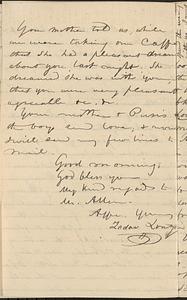 Your mother told us, while
we were taking our Coffee
that she had a pleasant dream
about you last night. She
dreamed she was with you
that you were very pleasant
agreeable &c. &c.
Your mother &
the boys send love, & now
I will send my few lines to
mail.
Good morning;
God bless you
My kind regards to
Mr. Allen.
Affe. Yours,
Zadoc Long